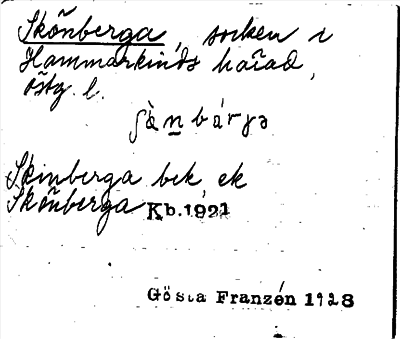 Skönberga, socken i
Hammarkinds härad,
östg. l.
ʃǜn bárga
Skinberga bek, ek
Skönberga Kb. 1921
Gösta Franzén 1928